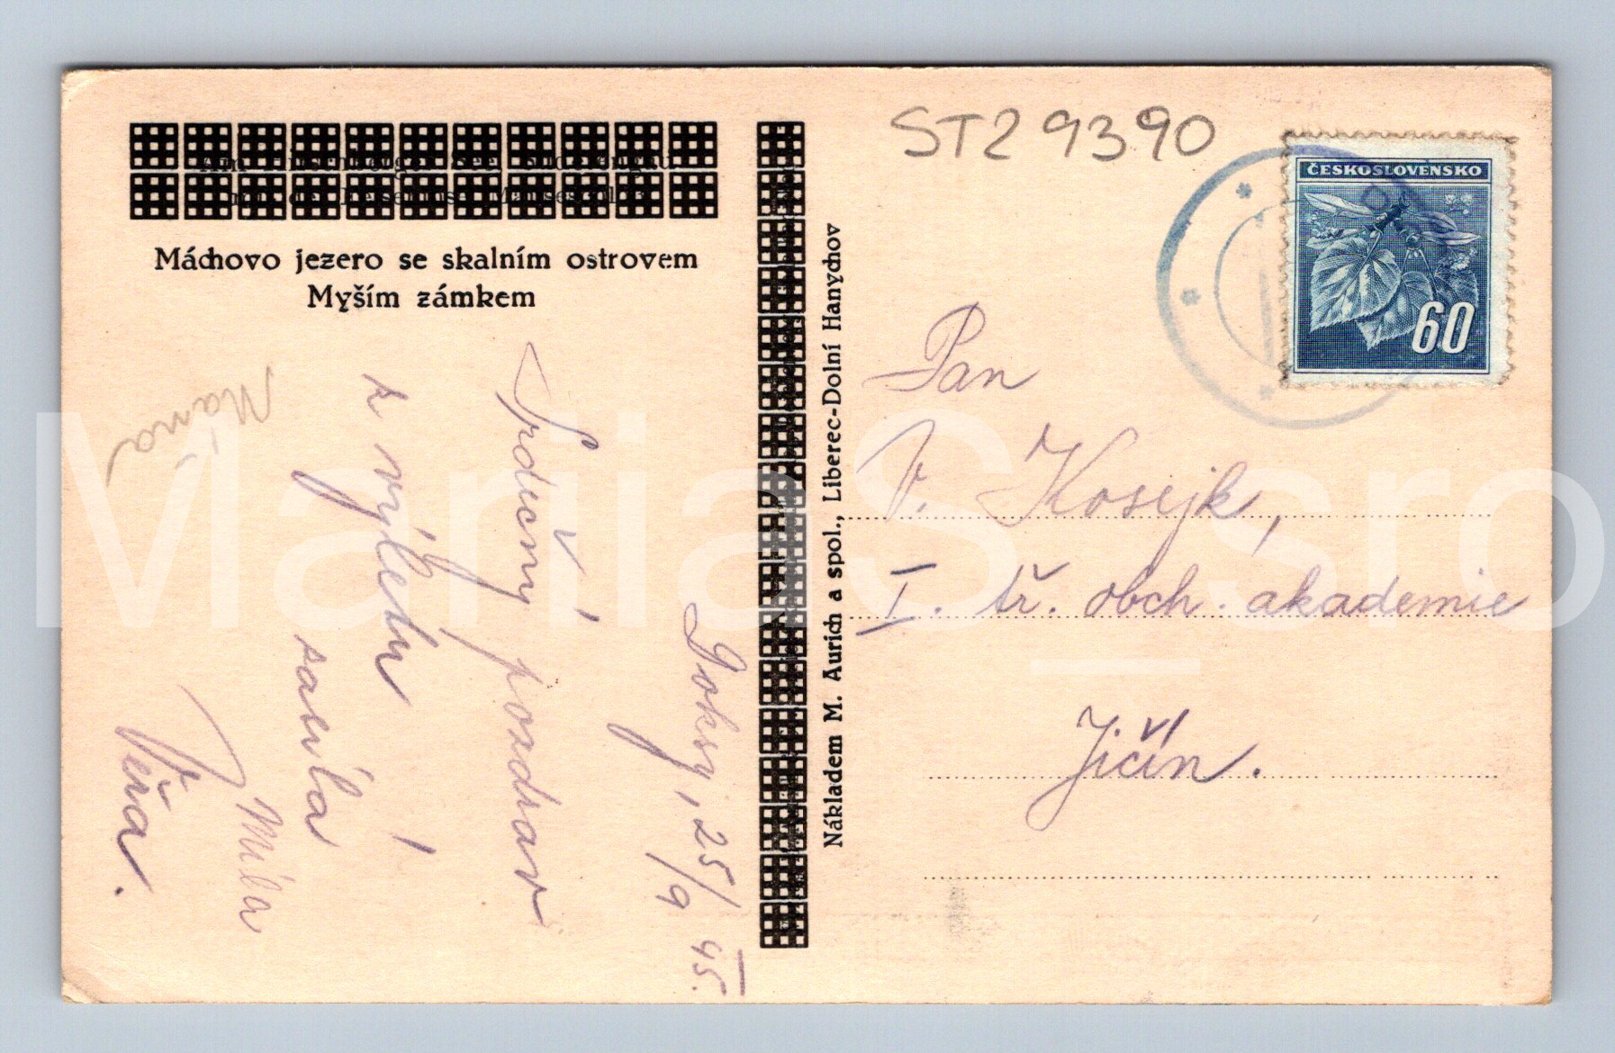 ST29390
ČESKOSLOVENSKO
60
Máchovo jezero se skalním ostrovem
Myším zámkem
Nákladem M. Aurich a spol., Liberec-Dolní Hanychov
Doksy, 25/9 45.
Srdečný pozdrav
z výletu
Věra.
Míla
Máňa
Pan
V. Kosejk,
I. tř. obch. akademie
Jičín.
MariiaS_sro